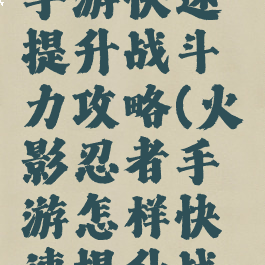 手游快速
提升战斗
力攻略(火
影忍者手
游怎样快
速提升战